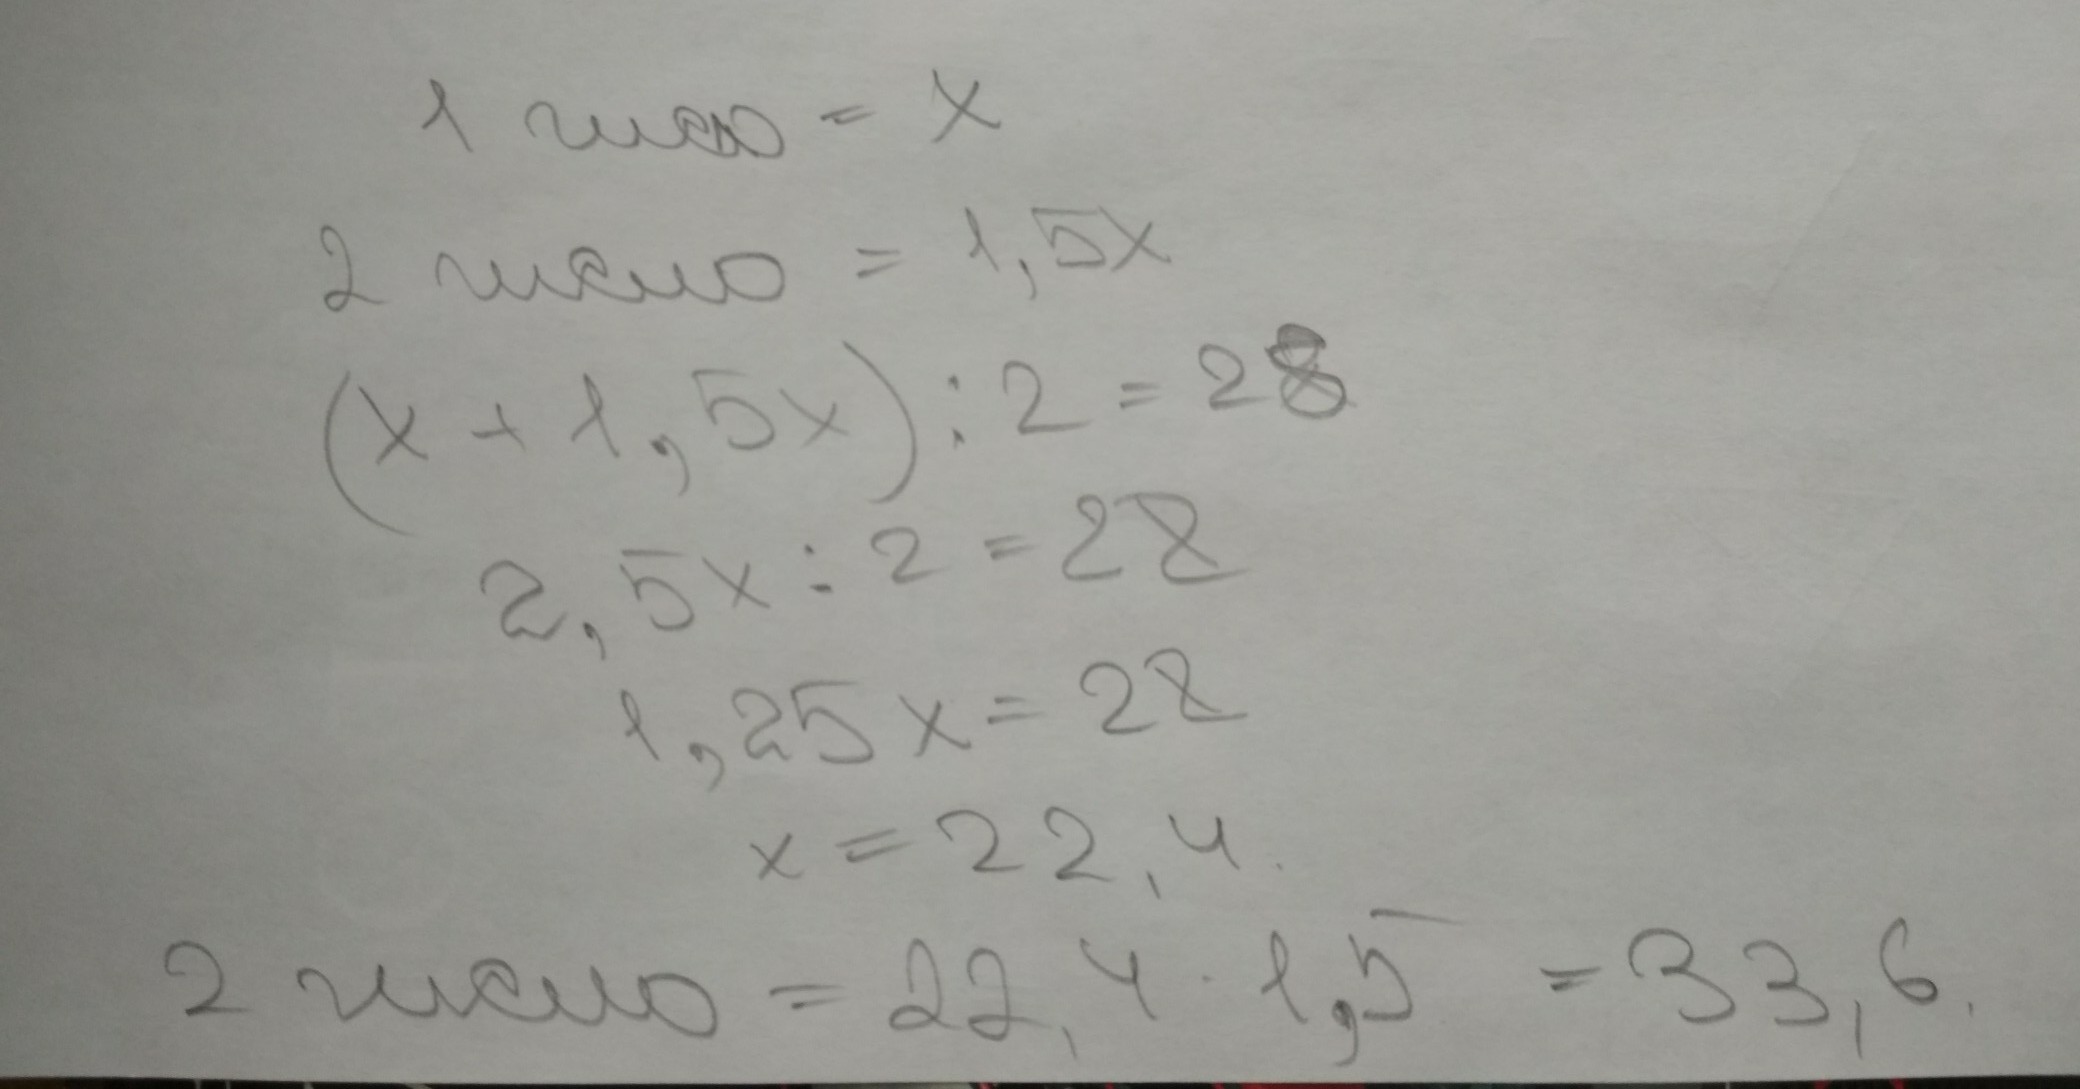 1 число = x
2 число = 1,5x
(x + 1,5x) : 2 = 28
2,5x : 2 = 28
1,25x = 28
x = 22,4.
2 число = 22,4 · 1,5 = 33,6.